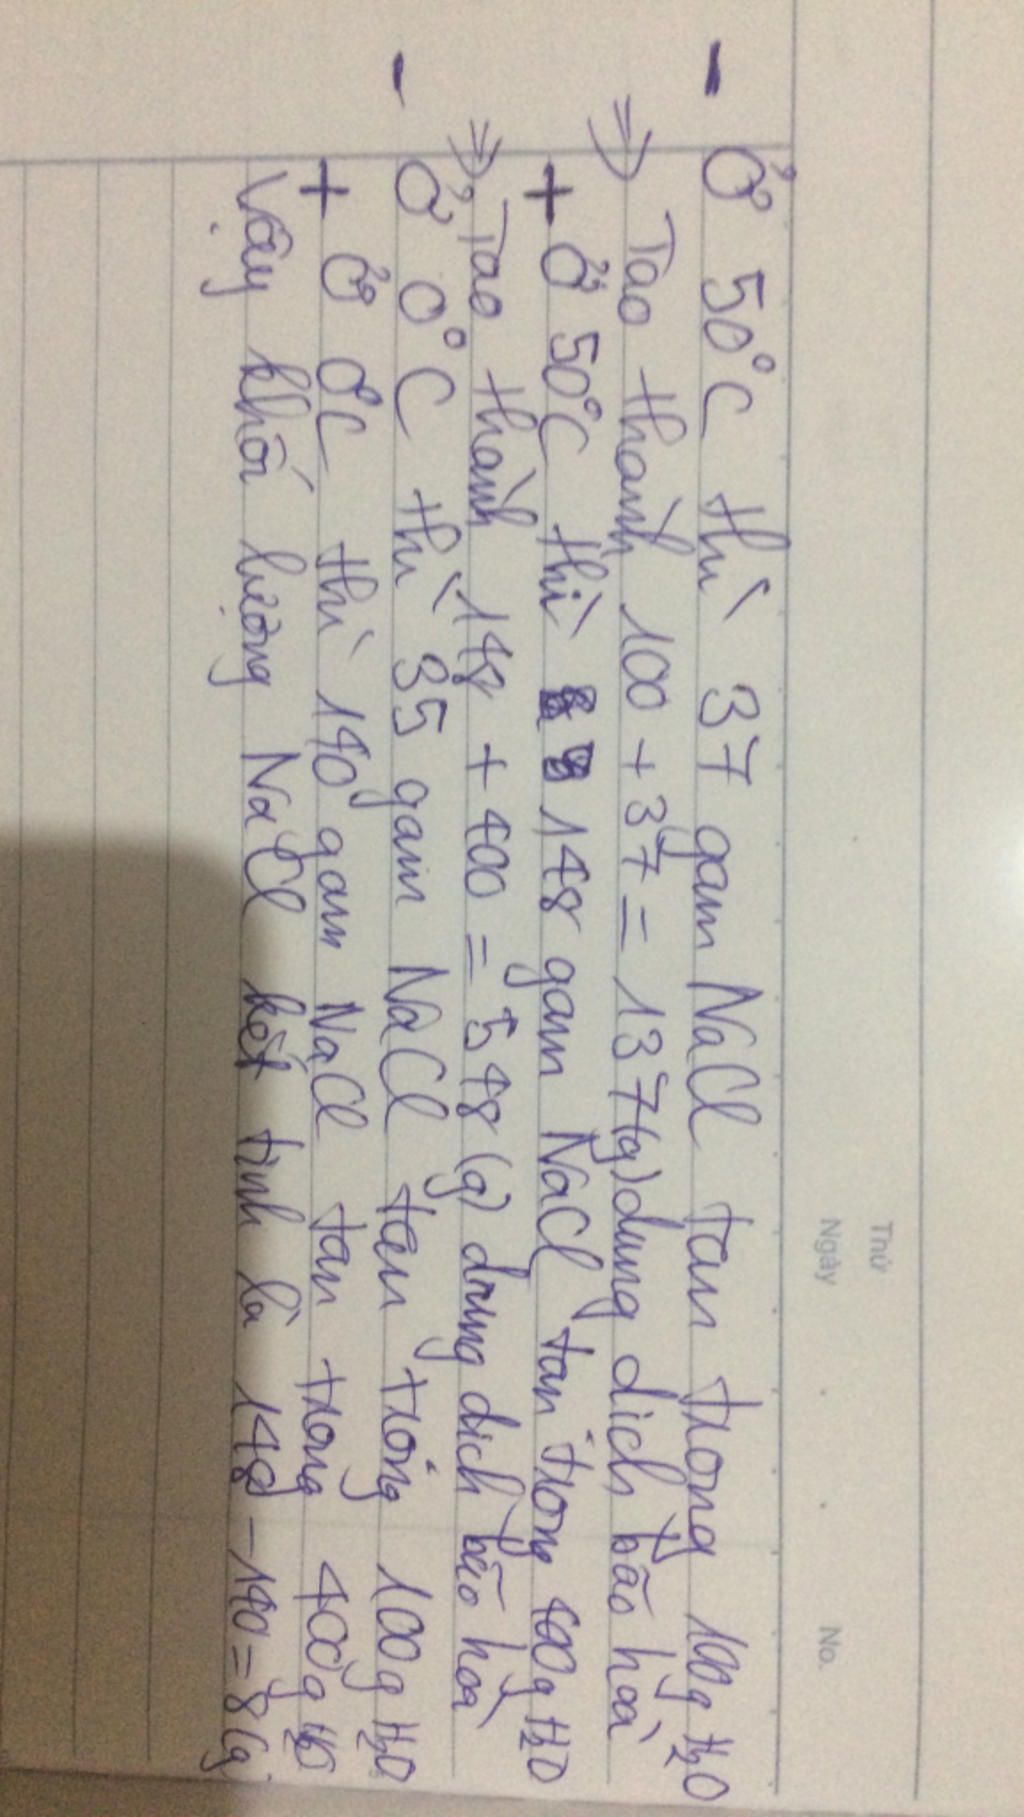 Thứ
Ngày
No.
- Ở 50°C thì 37 gam NaCl tan trong 100g H₂O
=> Tạo thành 100 + 37 = 137(g) dung dịch bão hoà
+ Ở 50°C thì 148 gam NaCl tan trong 400g H₂O
=> Tạo thành 148 + 400 = 548 (g) dung dịch bão hoà
- Ở 0°C thì 35 gam NaCl tan trong 100g H₂O
+ Ở 0°C thì 140 gam NaCl tan trong 400g H₂O
Vậy khối lượng NaCl kết tinh là 148 - 140 = 8 (g